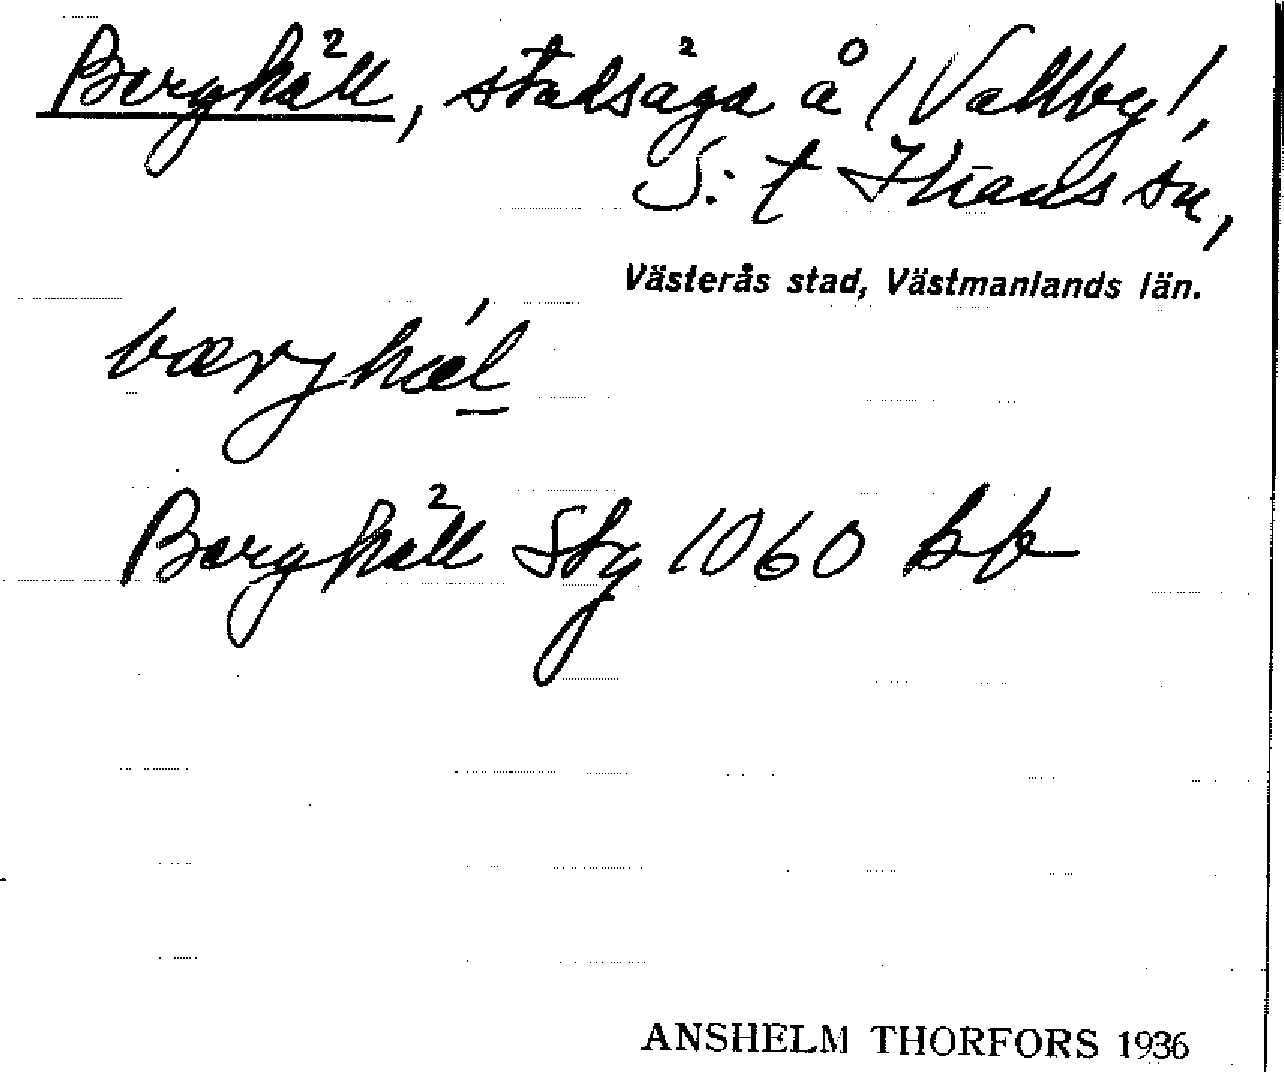 Berghäll, stadsäga å (Vallby),
S:t Ilians sn,
Västerås stad, Västmanlands län.
bærghǽl
Berghäll Stg 1060 bb
ANSHELM THORFORS 1936